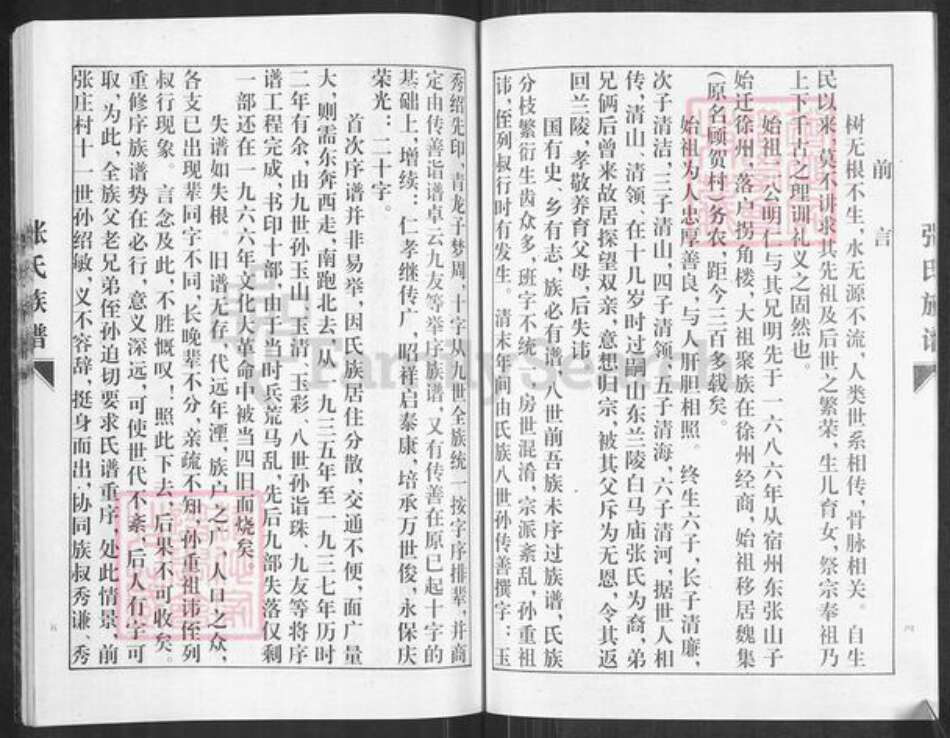 张氏族谱
前言
树无根不生，水无源不流，人类世系相传，骨脉相关。自生
民以来，莫不讲求其先祖及后世之繁荣，生儿育女，祭宗奉祖乃
上下千古之理训礼义之固然也。
始祖　公明仁与其兄明先于一六八六年从宿州东张山子
始迁徐州，落户拐角楼，大祖聚族在徐州经商，始祖移居魏集
（原名顾贺村）务农，距今三百多载矣。
始祖为人忠厚善良，与人肝胆相照。终生六子，长子清廉，
次子清洁，三子清山，四子清领，五子清海，六子清河，据世人相
传，清山、清领，在十几岁时过嗣山东兰陵白马庙张氏为裔，弟
兄俩后曾来故居探望双亲，意想归宗，被其父斥为无恩，令其返
回兰陵，孝敬养育父母，后失讳。
国有史，乡有志，族必有谱，八世前吾族未序过族谱，氏族
分枝繁衍生齿众多，班字不统一，房世混淆，宗派紊乱，孙重祖
讳，侄列叔行时有发生。清末年间由氏族八世孙传善撰字：玉
四
秀绍先印，青龙子梦周，十字从九世全族统一按字序排辈，并商
定由传善诣谱卓云九友等举序族谱，又有传善在原已起十字的
基础上，增续：仁孝继传广，昭祥启泰康，培承万世俊，永保庆
荣光：二十字。
首次序谱并非易举，因氏族居住分散，交通不便，面广量
大，则需东奔西走，南跑北去，从一九三五年至一九三七年历时
二年有余，由九世孙玉山、玉清、玉彩、八世孙诣珠、九友等将序
谱工程完成，书印十部，由于当时兵荒马乱，先后九部失落仅剩
一部还在一九六六年文化大革命中被当四旧而烧矣。
失谱如失根。旧谱无存，代远年湮，族户之广，人口之众，
各支已出现辈同字不同，长晚辈不分，亲疏不知，孙重祖讳侄列
叔行现象。言念及此，不胜慨叹！照此下去，后果不可收矣。
重修序族谱势在必行，意义深远，可使世代不紊，后人有字可
取，为此，全族父老兄弟侄孙迫切要求氏谱重序，处此情景，前
张庄村十一世孙绍敏，义不容辞，挺身而出，协同族叔秀谦、秀
张氏族谱
五
FamilySearch